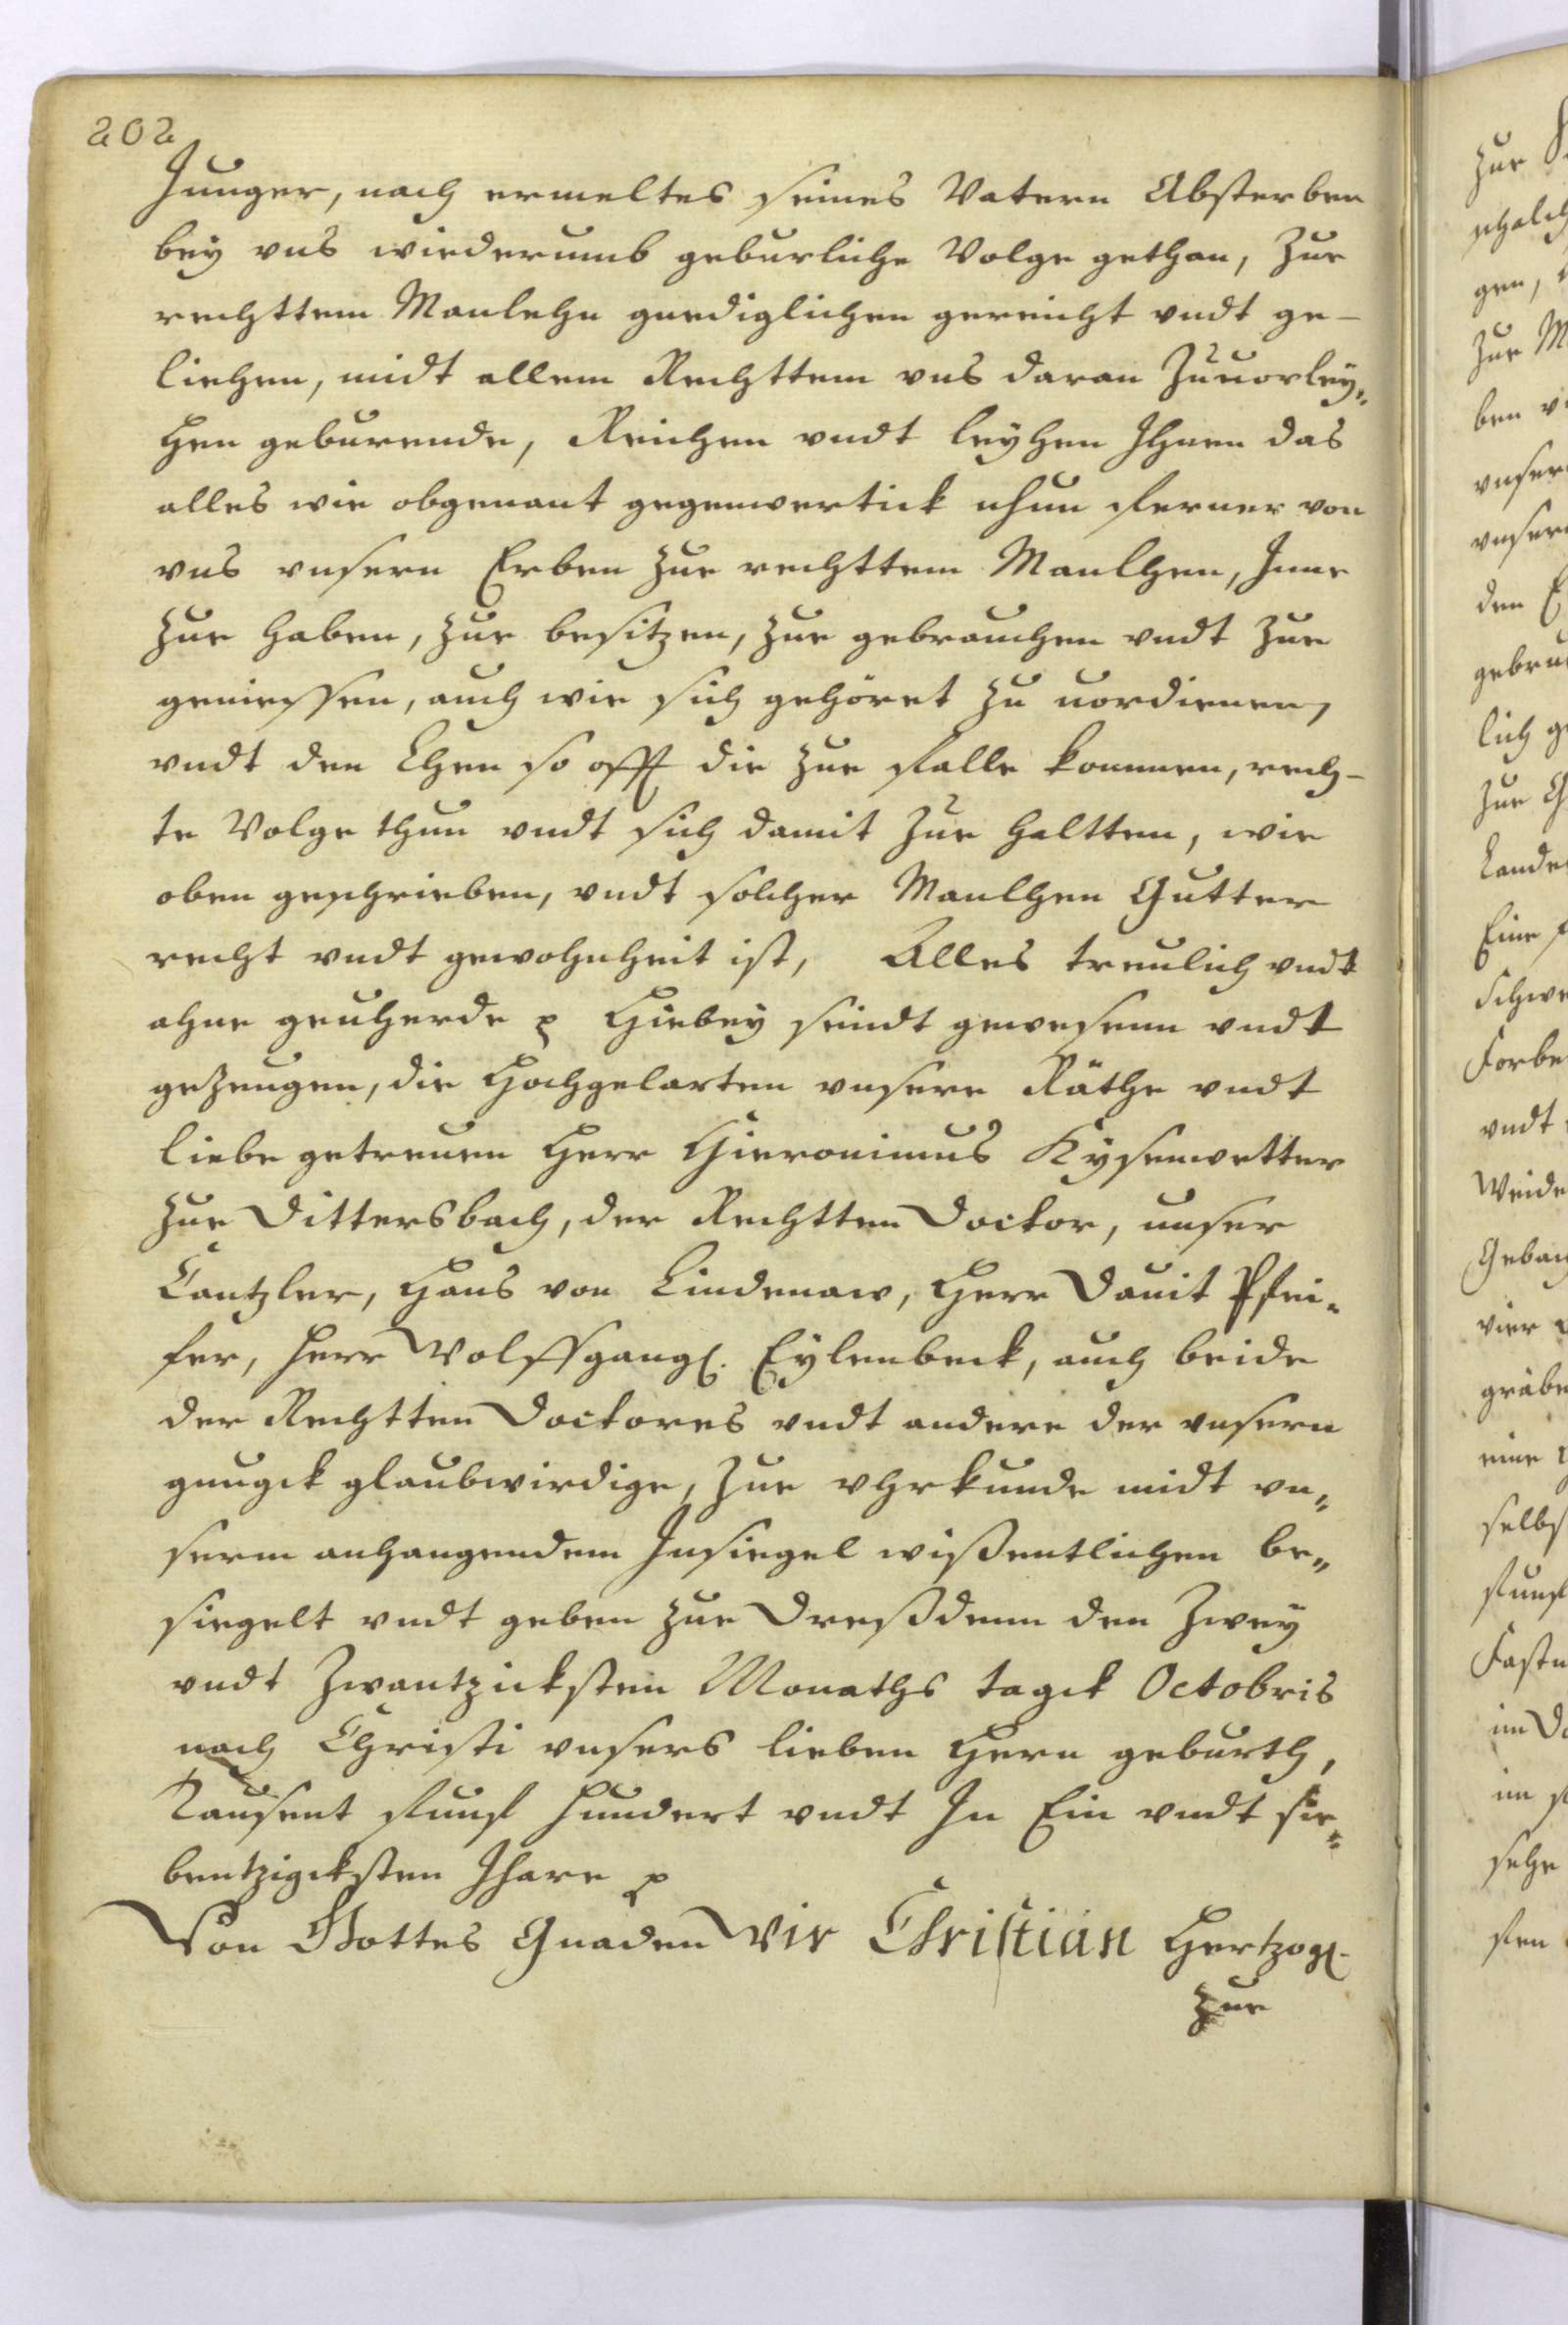 202
Junger, nach ermeltes seines Vatern Absterben
bey vns wiederumb geburliche Volge gethan, Zue
rechttem Manlehn gnediglichen gereicht vndt ge-
liehen, midt allem Rechttem vns daran Zuuorley„
hen geburende, Reichen vndt leyhen Ihnen das
alles wie obgenant gegenwertick nhun ferner von
vns vnsern Erben Zue rechttem Manlhen, Inne
Zue haben, Zue besitzen, Zue gebrauchen vndt Zue
geniessen, auch wie sich gehöret Zu uordienen,
vndt den Lhen so offt die Zue falle kommen, rech-
te Volge thun vndt sich damit Zue haltten, wie
oben geschrieben, vndt solcher Manlhen Gutter
recht vndt gewohnheit ist, Alles treulich vndt
ahne geuherde Hiebey seindt gewesenn vndt
gezeugen, die Hochgelarten vnsere Räthe vndt
liebe getreuen Herr Hieronimus Kysenwetter
Zue Dittersbach, der Rechtten Doctor, unser
Cantzler, Hans von Lindenaw, Herr Dauit Pfei„
fer, Herr Wolffgang. Eylenbeck, auch beide
der Rechtten Doctores vndt andere der vnsern
gnugck glaubwirdige, Zue vhrkunde midt vn„
serm anhangendem Insiegel wißentlichen be„
siegelt vndt geben Zue Dreßdenn den Zwey
vndt Zwantzicksten Monaths tagck Octobris
nach Christi vnsers lieben Hern geburth,
Tausent funf hundert vndt In Ein vndt sie„
bentzigcksten Jhare
Von Gottes Gnaden Wir Christian Hertzog.
Zue
zue
gen,
Zue M
ben v
vnser
vnser
den E
gebra
lich g
Zue G
Lande
Eine
Schwe
Forbe
vndt
Weide
Gebau
vier
gräbe
eine
selbs
funf
Fastn
im Do
im
sehe